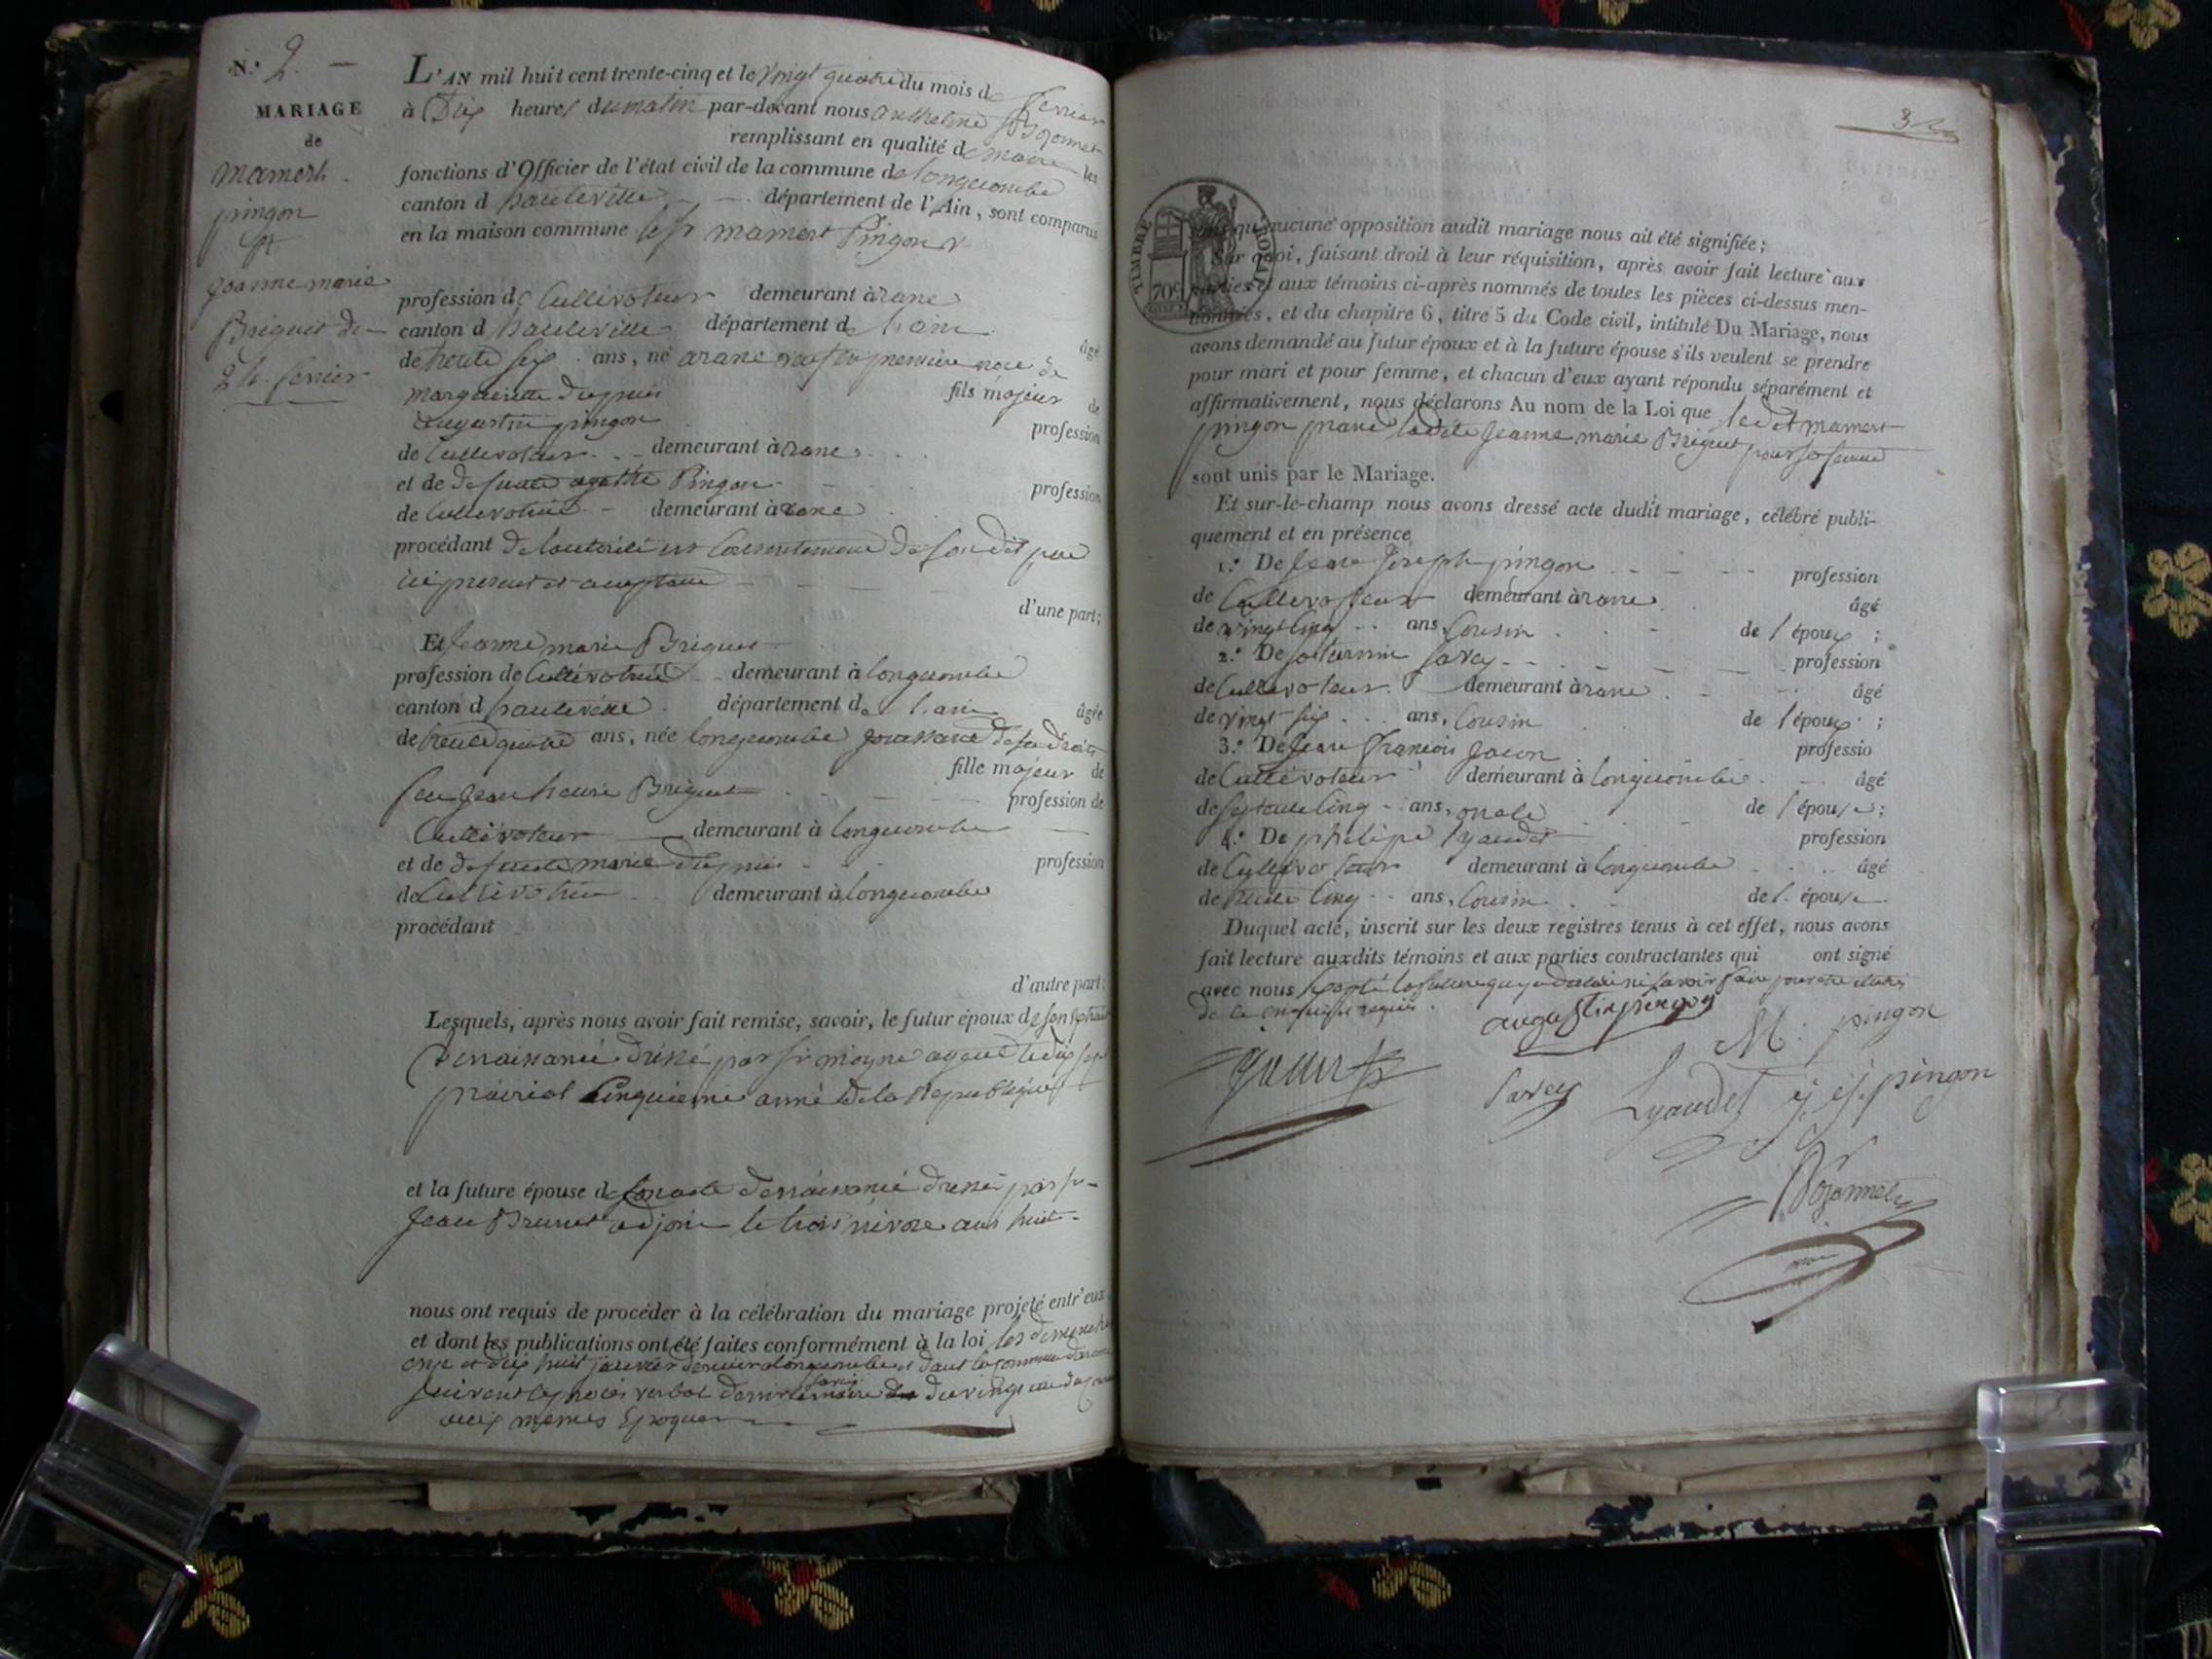 N.° 2. —
MARIAGE
de
mamert
pingon
Et
jeanne marie
Briguet du
24. fevrier
L'AN mil huit cent trente-cinq et le vingt quatre du mois de fevrier
à Dix heures du matin par-devant nous anthelme
remplissant en qualité de maire les
fonctions d'Officier de l'état civil de la commune de longecombe
canton d hauteville département de l'Ain, sont comparus
en la maison commune le sr mamert Pingon
profession de Cultivateur demeurant à arane
canton d hauteville département de l'ain âgé
de trente six ans, né arane veuf en premiere noce de
marguerite dupuis fils majeur de
augustin pingon profession
de Cultivateur demeurant à arane
et de defunte agathe Pingon profession
de Cultivatrice demeurant à arane
procédant de l'autorité et Consentement de son dit pere
ici present et acceptant
d'une part;
Et jeanne marie Briguet
profession de Cultivatrice demeurant à longecombe
canton d hauteville département de l'ain âgée
de trente quatre ans, née longecombe jouissant de ses droits
fille majeur de
feu jean henri Briguet profession de
Cultivateur demeurant à longecombe
et de defunte marie dupuis profession
de Cultivatrice demeurant à longecombe
procédant
d'autre part;
Lesquels, après nous avoir fait remise, savoir, le futur époux de son
de naissance dressé par sr moyne agent le dix sept
prairial Cinquieme année de la Republique
et la future épouse de son acte de naissance dressé par sr
jean Brunet adjoint le trois nivose ans huit
nous ont requis de procéder à la célébration du mariage projeté entr'eux
et dont les publications ont été faites conformément à la loi les dimanche
onze et dix huit janvier dernier a longecombe et dans la commune d'arane
suivant le procès verbal de mr le maire du vingt
aux memes Epoques
3
TIMBRE ROYAL
70c
sans qu'aucune opposition audit mariage nous ait été signifiée;
Sur quoi, faisant droit à leur réquisition, après avoir fait lecture aux
parties et aux témoins ci-après nommés de toutes les pièces ci-dessus men-
tionnées, et du chapitre 6, titre 5 du Code civil, intitulé Du Mariage, nous
avons demandé au futur époux et à la future épouse s'ils veulent se prendre
pour mari et pour femme, et chacun d'eux ayant répondu séparément et
affirmativement, nous déclarons Au nom de la Loi que ledit mamert
pingon prand ladite jeanne marie Briguet pour sa femme
sont unis par le Mariage.
Et sur-le-champ nous avons dressé acte dudit mariage, célébré publi-
quement et en présence
1.° De jean joseph pingon profession
de Cultivateur demeurant à arane âgé
de vingt cinq ans, Cousin de l'époux;
2.° De saturnin savey profession
de Cultivateur demeurant à arane âgé
de vingt six ans, Cousin de l'époux;
3.° De jean françois profession
de Cultivateur demeurant à longecombe âgé
de septante Cinq ans, oncle de l'épouse;
4.° De phelipe lyaudet profession
de Cultivateur demeurant à longecombe âgé
de trente Cinq ans, Cousin de l'épouse
Duquel acte, inscrit sur les deux registres tenus à cet effet, nous avons
fait lecture auxdits témoins et aux parties contractantes qui ont signé
avec nous Excepté la future qui a declaré ne savoir faire pour etre
de ce enquise et requise.
augustin pingon
M. pingon
Savey
Lyaudet
j. j. pingon